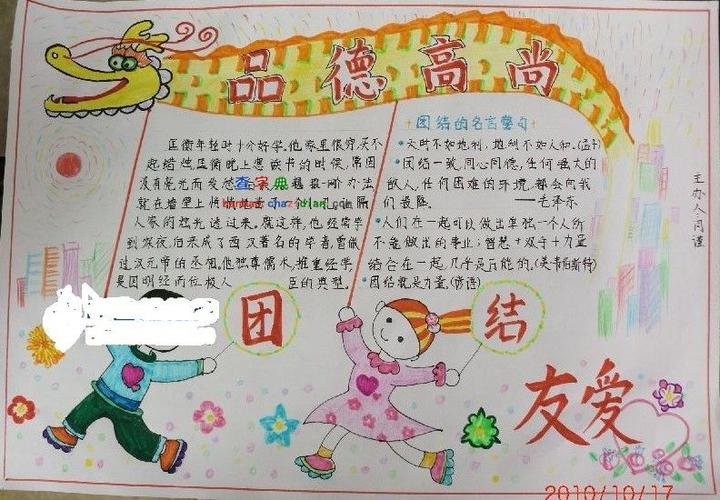 品德高尚
匡衡年轻时十分好学,他家里很穷,买不
起蜡烛,匡衡晚上想读书的时候,常因
没有亮光而发愁。
就在墙壁上悄悄地凿了个小孔,让隔
人家的烛光透过来。就这样,他经常学
到深夜,后来成了西汉著名的学者,曾做
过汉元帝的丞相。他独尊儒术,推重经学,
是因明经而位极人臣的典型。
查字典
chazidian.com
团结的名言警句
•天时不如地利,地利不如人和。(孟子)
•团结一致,同心同德,任何强大的
敌人,任何困难的环境,都会向我
们投降。——毛泽东
•人们在一起可以做出单独一个人所
不能做出的事业;智慧+双手+力量
结合在一起,几乎是万能的。(美·韦伯斯特)
•团结就是力量。(谚语)
主办人:闫谨
团
结
友爱
2010/10/17